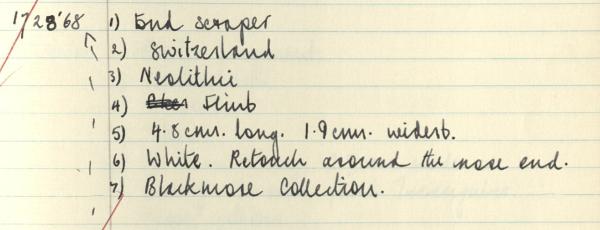 1728'68 1) End scraper
2) Switzerland
3) Neolithic
4) Flint
5) 4.8cms. long. 1.9cms. widest.
6) White. Retouch around the nose end.
7) Blackmore Collection.